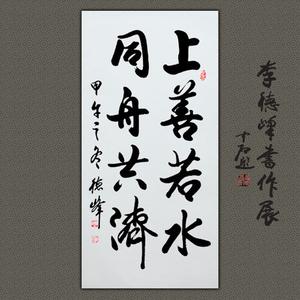 上善若水
同舟共濟
甲午之冬 德峰
李德峰書作展